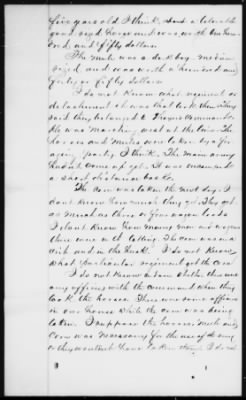 five years old I think, and a tolerable
good sized horse and was worth one hun-
dred and fifty dollars.
The mule was a dark bay, medium
sized, and was worth a hundred and
forty or fifty dollars.
I do not know what regiment or
detachment it was that took them. They
said they belonged to
He was marching west at the time. The
horses and mules were taken by a for-
aging party I think. The main army
had not come up yet. It was encamped
a short distance back.
The corn was taken the next day. I
dont know how much they got. They got
as much as three or four wagon loads
I dont know how many men and wagons
there were getting. The corn was in a
crib and in the husk. I do not know
what particular regiment got the corn
I do not know whether there was
any officer with the command when they
took the horses. There was some officers
in our house while the corn was being
taken. I suppose the horses, mule and
corn was necessary for the use of the army
or they wouldnt have taken them. I do not